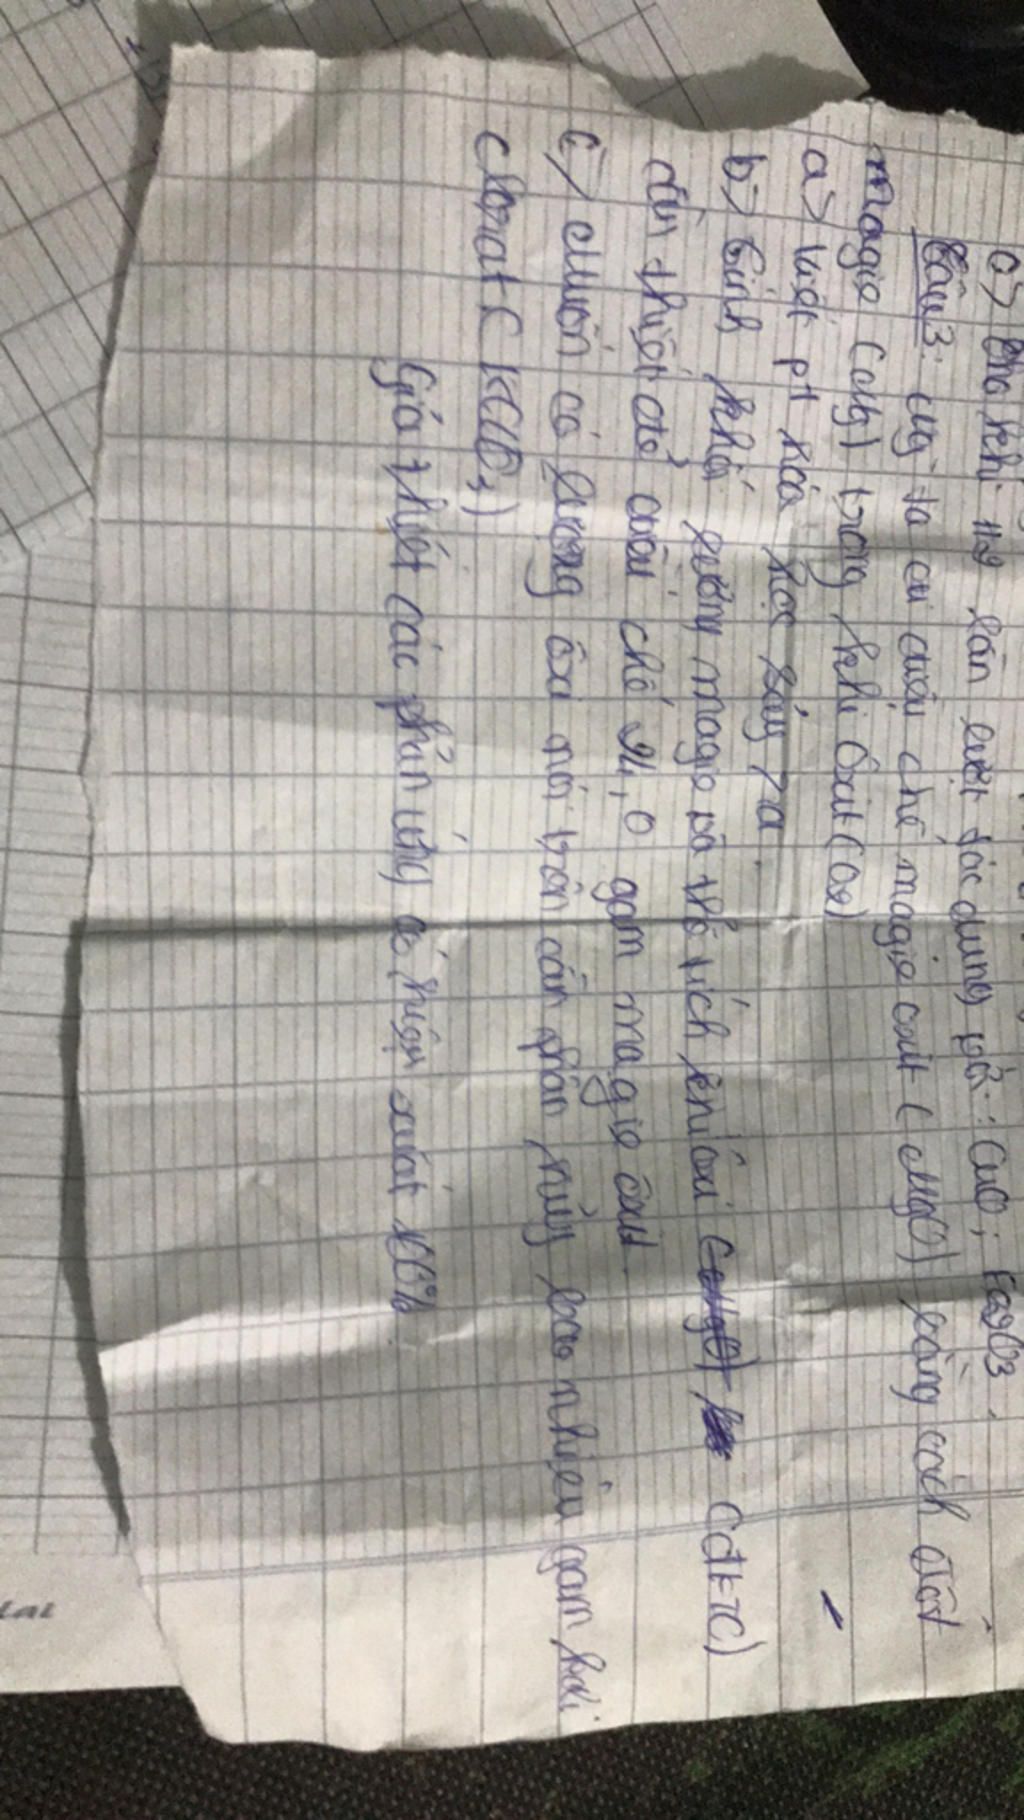 c) Cho khí H2 lần lượt tác dụng với: CuO; Fe2O3.
Câu 3: ta điều chế magie oxit (MgO) bằng cách đốt
magie (Mg) trong khí ôxit (O2)
a) Viết pt hóa học sảy ra.
b) tính khối lượng magie và thể tích khí ôxi (đktc)
cần thiết để điều chế 24,0 gam magie oxit.
c) Muốn có lượng ôxi nói trên cần phân hủy bao nhiêu gam kali
clorat (KClO3)
Giả thiết các phản ứng có hiệu suất 100%.